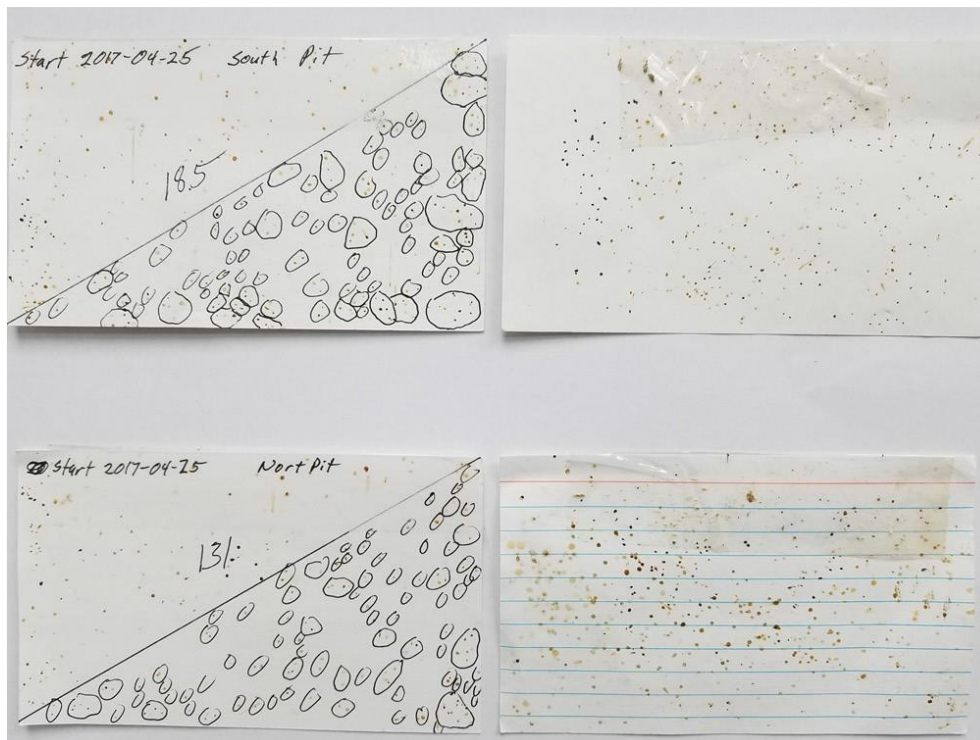 Start 2017-04-25 South Pit
185
Start 2017-04-25 Nort Pit
131